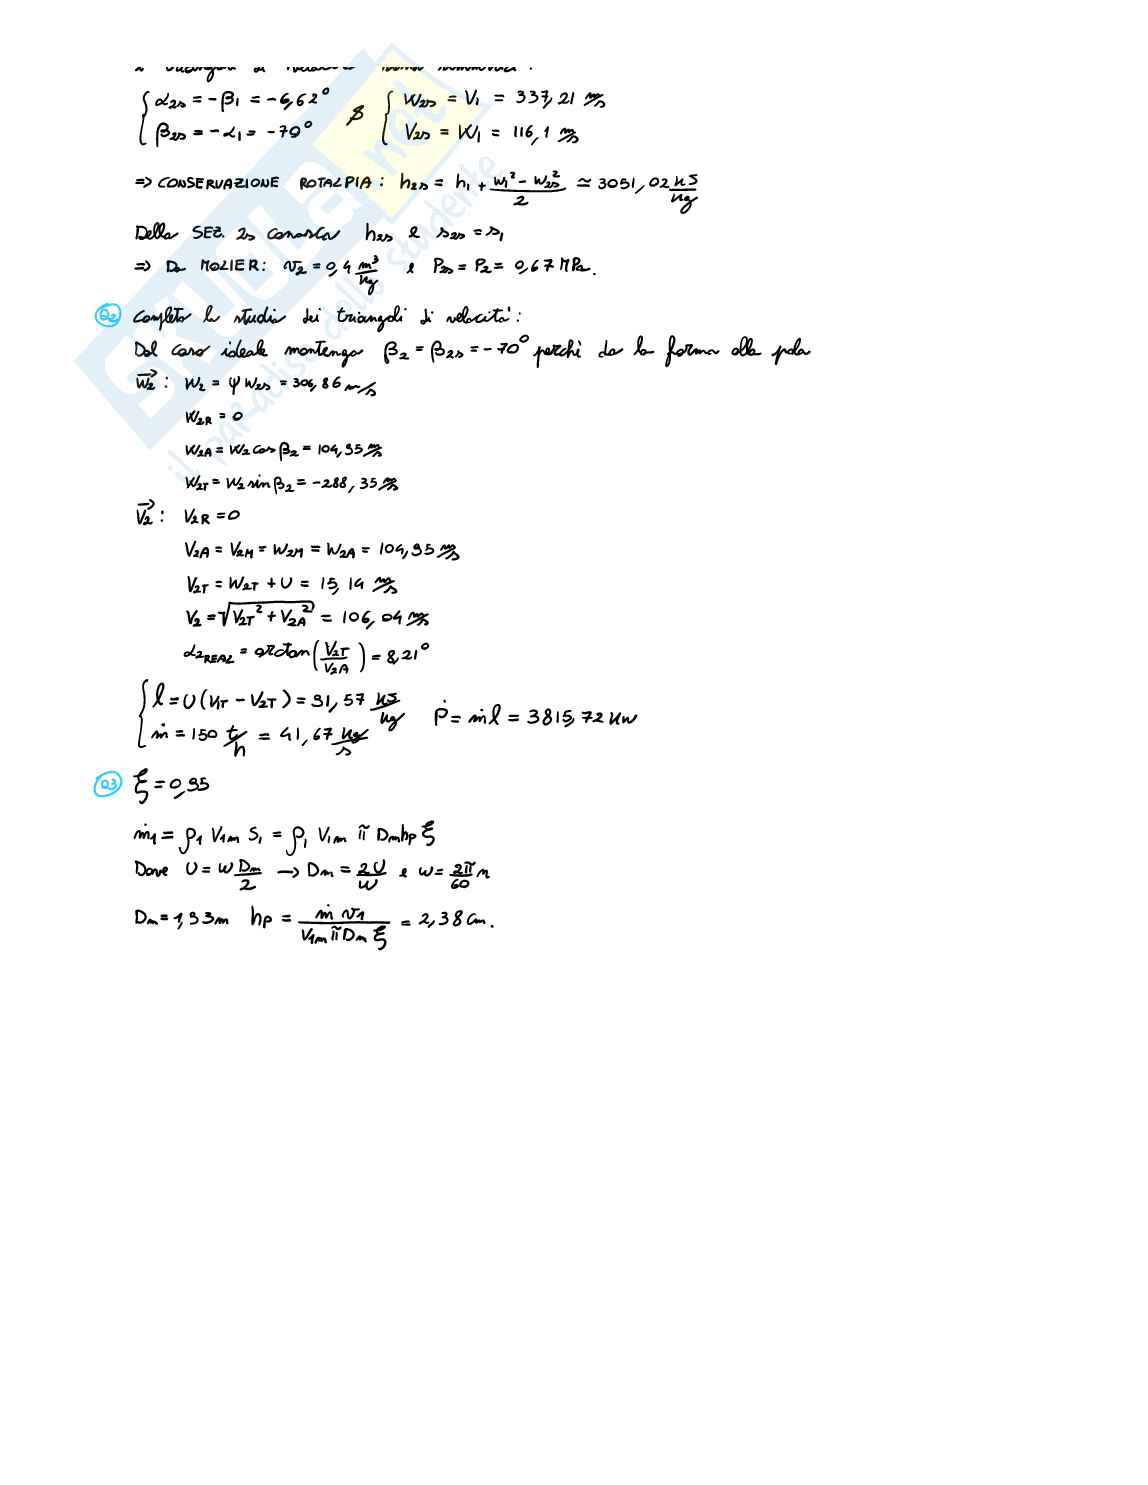 α2s = -β1 = -6,62° & W2s = V1 = 337,21 m/s
β2s = -α1 = -70° V2s = W1 = 116,1 m/s
=> CONSERVAZIONE ROTALPIA: h2s = h1 + (w1² - w2s²)/2 ≃ 3051,02 kJ/kg
Della SEZ. 2s conosco h2s e s2s = s1
=> Da MOLIER: v2 = 0,4 m³/kg e P2s = P2 = 0,67 MPa.
Q2 Completo lo studio dei triangoli di velocità:
Dal caso ideale mantengo β2 = β2s = -70° perchè da la forma alla pala
W2: W2 = ψ W2s = 306,86 m/s
W2R = 0
W2A = W2 cos β2 = 104,95 m/s
W2T = W2 sin β2 = -288,35 m/s
V2: V2R = 0
V2A = V2M = W2M = W2A = 104,95 m/s
V2T = W2T + U = 15,14 m/s
V2 = √(V2T² + V2A²) = 106,04 m/s
α2REAL = arctan(V2T/V2A) = 8,21°
l = U(V1T - V2T) = 91,57 kJ/kg
ṁ = 150 t/h = 41,67 kg/s Ṗ = ṁl = 3815,72 kW
Q3 ξ = 0,95
ṁ1 = ρ1 V1m S1 = ρ1 V1m π Dmhp ξ
Dove U = ω Dm/2 → Dm = 2U/ω e ω = 2π/60 n
Dm = 1,93m hp = ṁ v1/(V1m π Dm ξ) = 2,38 cm.
SKUOLA.net
il paradiso dello studente